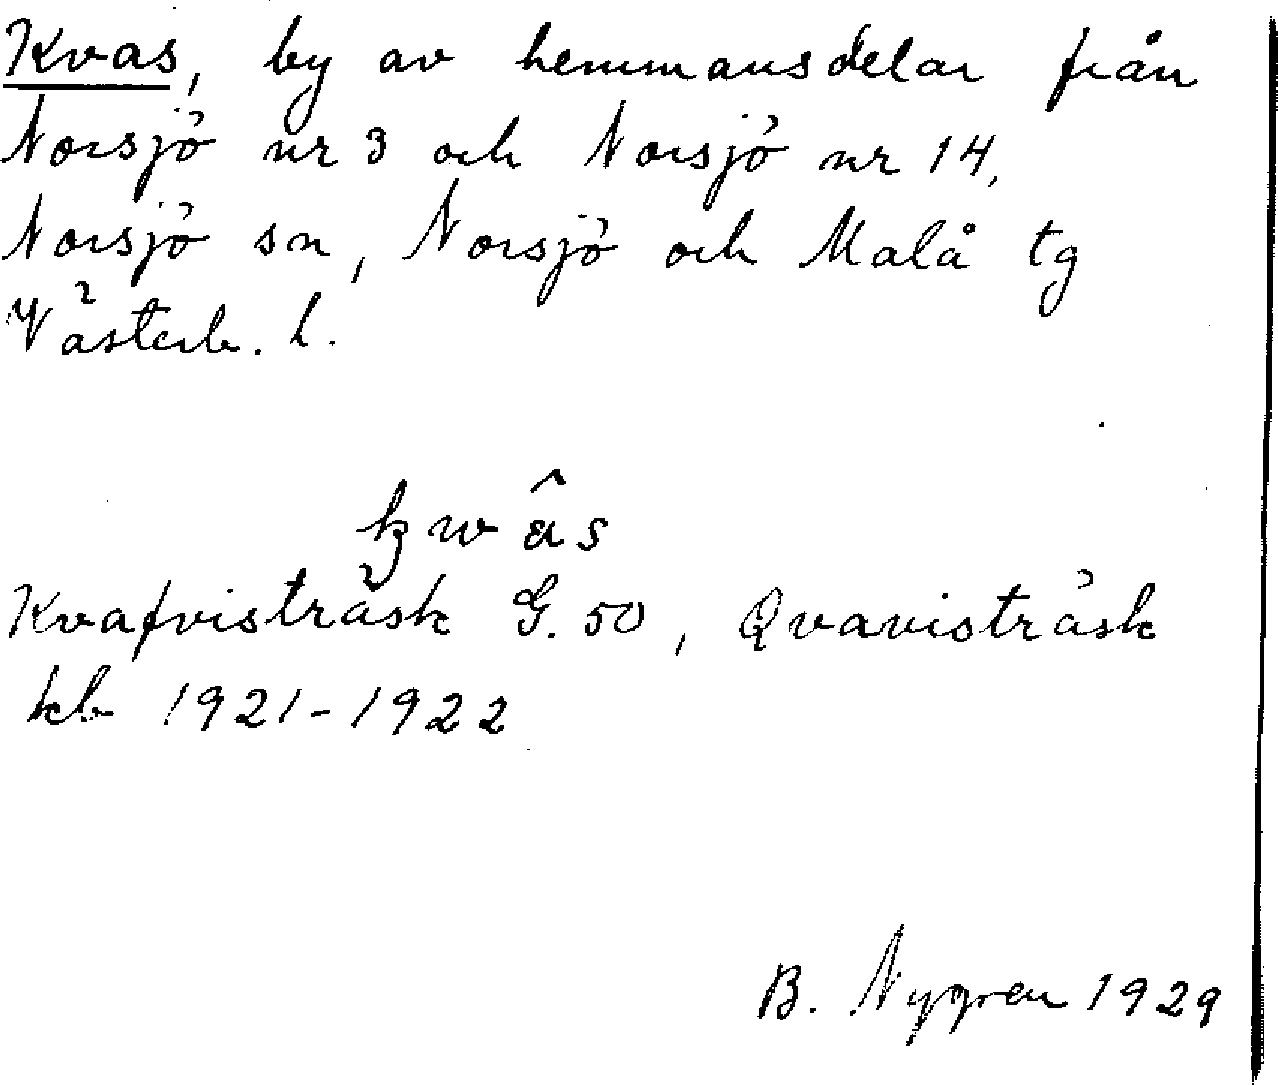 Kvas, by av hemmansdelar från
Norsjö nr 3 och Norsjö nr 14,
Norsjö sn, Norsjö och Malå tg
Västerb. l.
kwâs
Kvafvisträsk G. 50, Qvavisträsk
kb 1921-1922
B. Nygren 1929